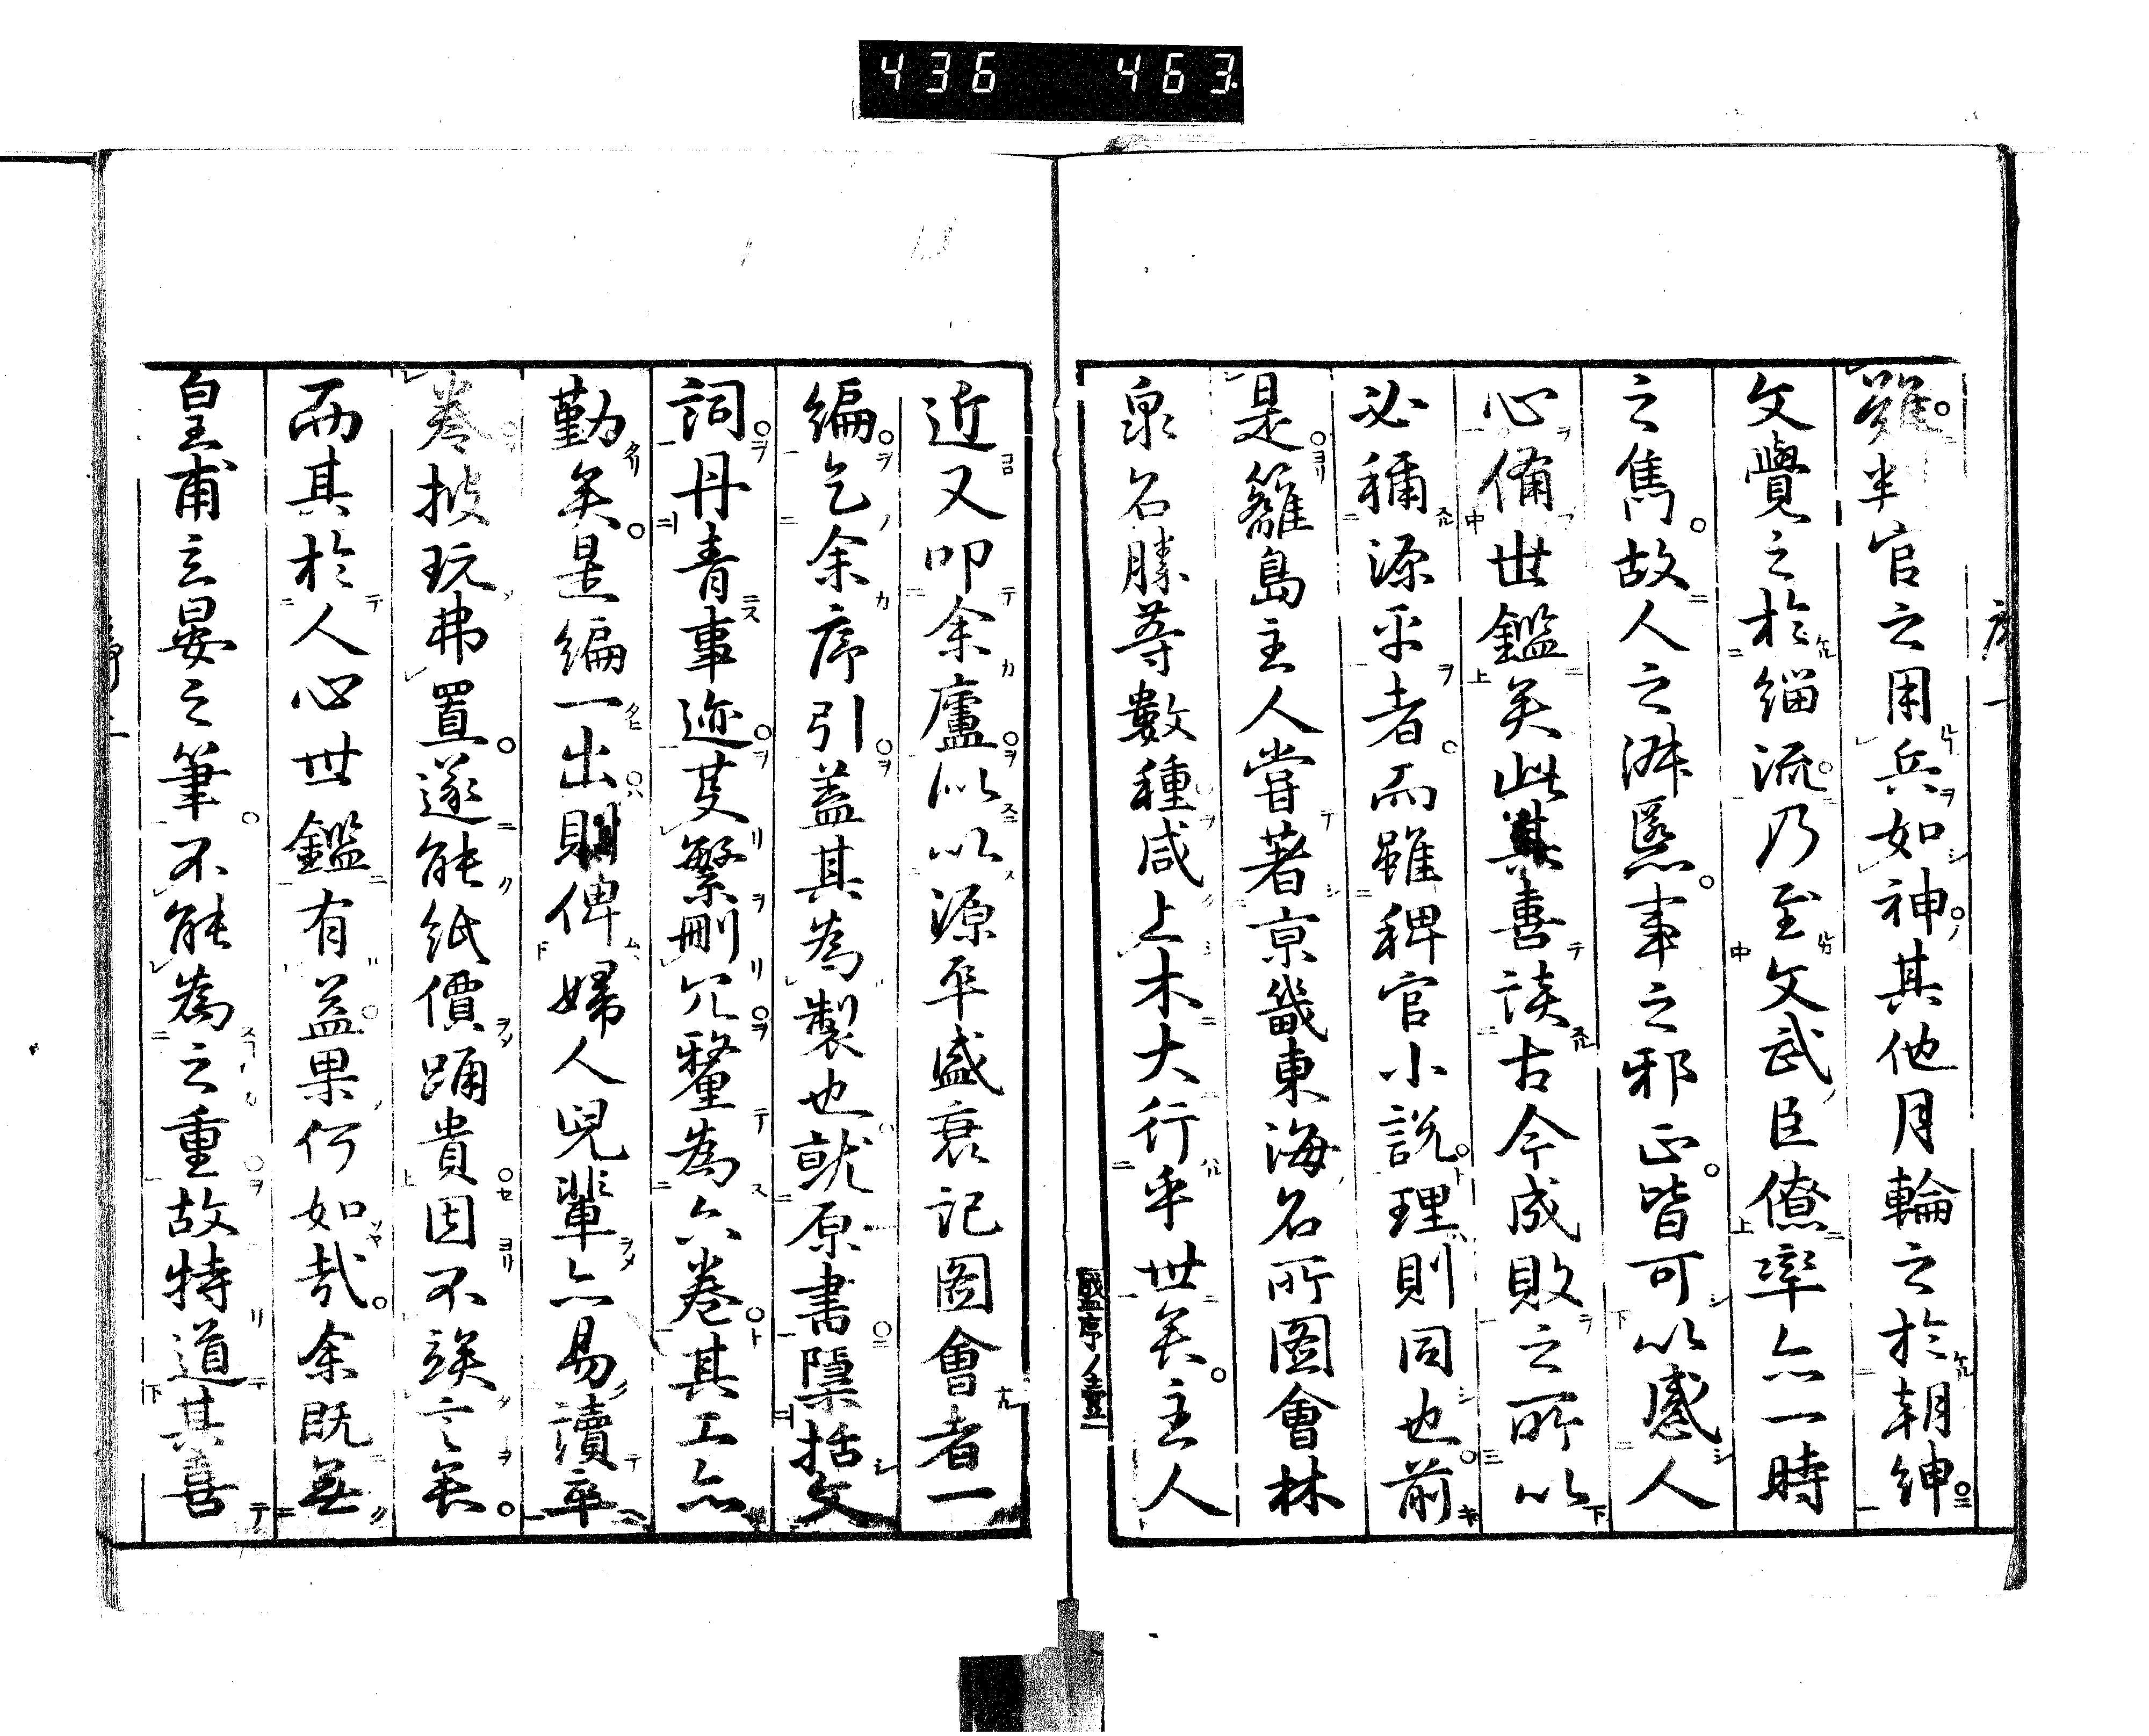 436 463
序一
難半官之用兵如神其他月輪之於朝紳
文覺之於緇流乃至文武臣僚率亦一時
之雋故人之淋慝事之邪正皆可以感人
心備世鑑矣此其喜談古今成敗之所以
必稱源平者而雖稗官小說理則同也前
是籬島主人嘗著京畿東海名所圖會林
泉名勝等數種咸上木大行乎世矣主人
近又叩余廬以以源平盛衰記圖會者一
編乞余序引蓋其為製也就原書隱括文
詞丹青事迹芟繁刪冗釐為六卷其工亦
勤矣是編一出則俾婦人兒輩亦易讀率
卷披玩弗置遂能紙價踊貴因不竢言矣
而其於人心世鑑有益果何如哉余既無
皇甫玄晏之筆不能為之重故特道其善